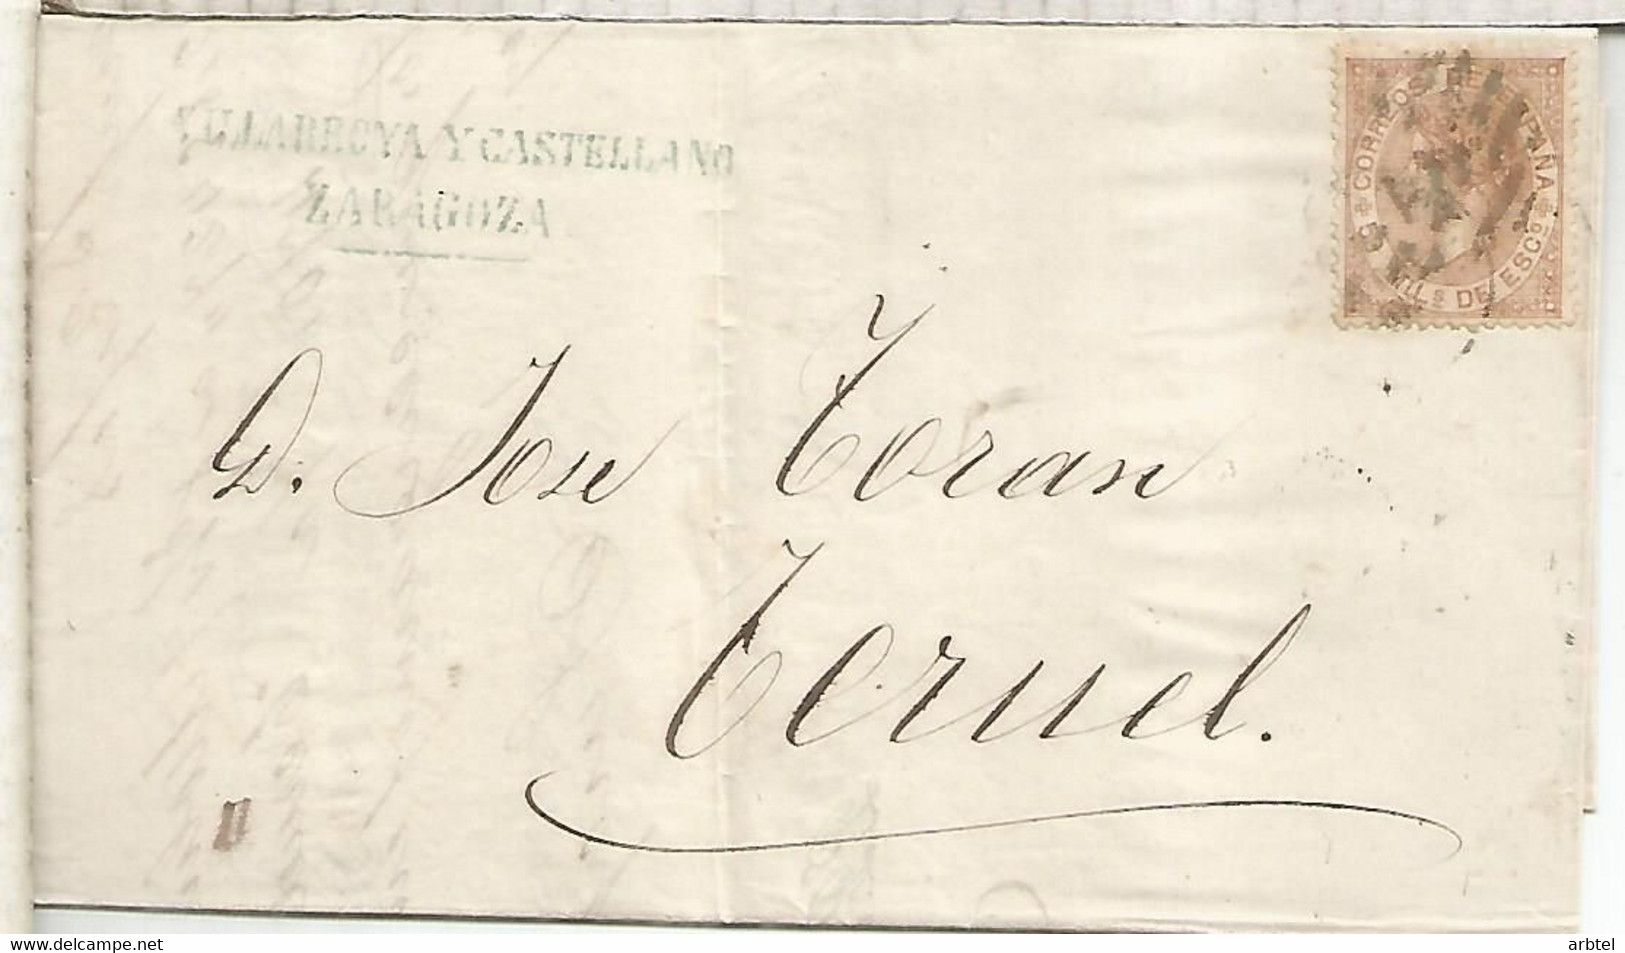 VILLARROYA Y CASTELLANO
ZARAGOZA
CORREOS DE ESPAÑA
5 MILS DE ESCO
D. Jose Toran
Teruel.
www.delcampe.net
arbtel